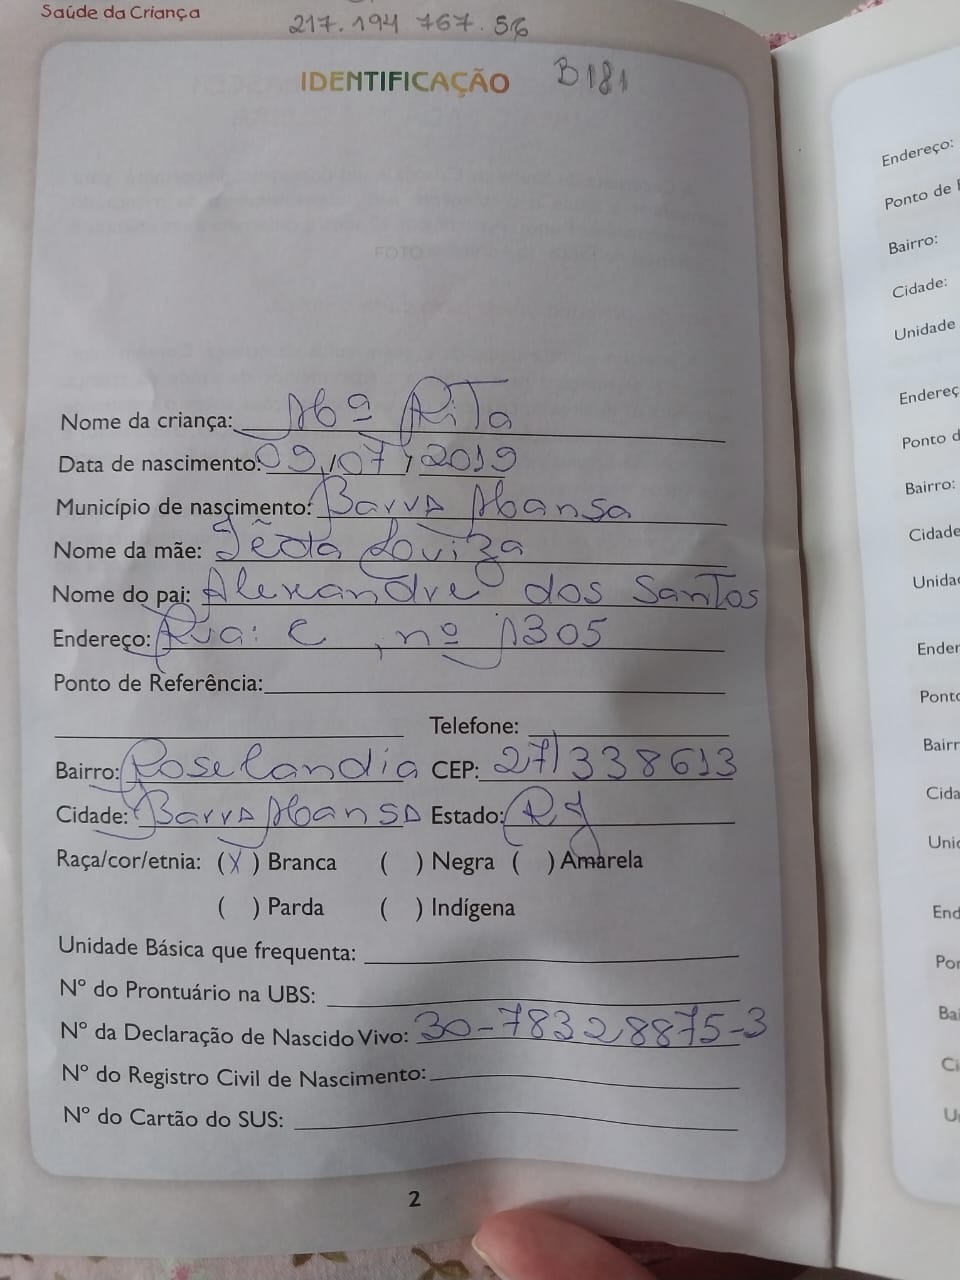 Saúde da Criança
217.194.767.56
IDENTIFICAÇÃO B181
FOTO
Nome da criança: Mª Rita
Data de nascimento: 09/07/2019
Município de nascimento: Barra Mansa
Nome da mãe: Louiza
Nome do pai: Alexandre dos Santos
Endereço: Rua: C, nº 1305
Ponto de Referência:
Telefone:
Bairro: Roselandia CEP: 27338613
Cidade: Barra Mansa Estado: RJ
Raça/cor/etnia: (X) Branca ( ) Negra ( ) Amarela
( ) Parda ( ) Indígena
Unidade Básica que frequenta:
Nº do Prontuário na UBS:
Nº da Declaração de Nascido Vivo: 30-78328875-3
Nº do Registro Civil de Nascimento:
Nº do Cartão do SUS:
2
Endereço:
Ponto de
Bairro:
Cidade:
Unidade
Endereç
Ponto d
Bairro:
Cidade
Unida
Ender
Ponto
Bairr
Cida
Unic
End
Por
Bai
Ci
U